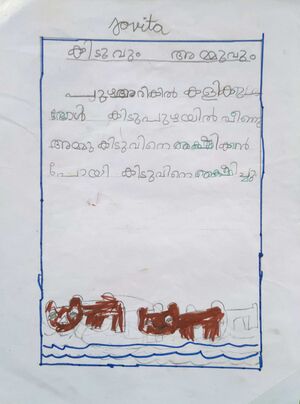 sovita
കിടുവും അമ്മുവും
പുഴഅറികിൽ കളിക്കുമ്പോ
ൾ കിടുപുഴയിൽ വീണു
അമ്മുകിടുവിനെ രക്ഷിക്കൻ
പോയി കിടുവിനെ രക്ഷിച്ചു